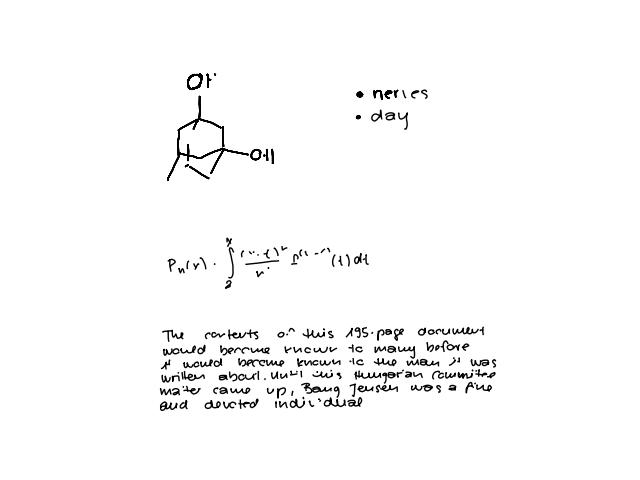 OH
• neries
• day
OH
The contents of this 195-page document
would become known to many before
it would become known to the man it was
written about. Until this Hungarian committee
matter came up, Bang Jensen was a fine
and devoted individual